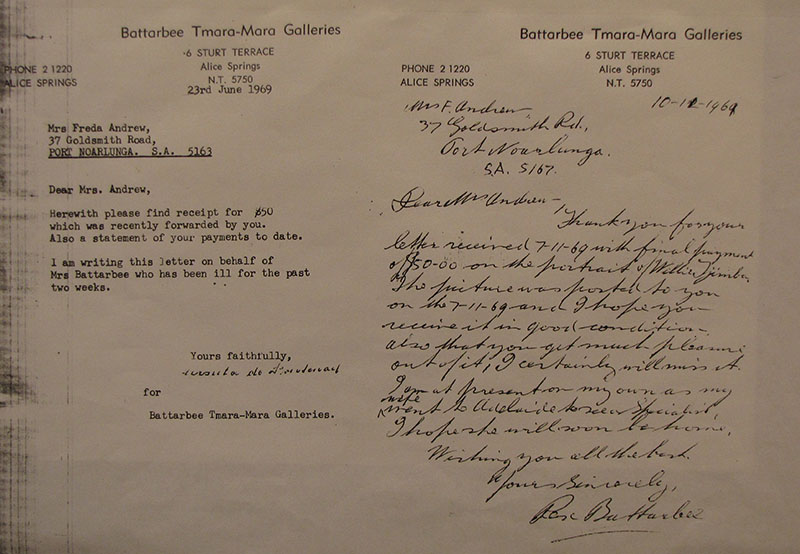 Battarbee Tmara-Mara Galleries
6 STURT TERRACE
PHONE 2 1220
Alice Springs
ALICE SPRINGS
N.T. 5750
23rd June 1969
Mrs Freda Andrew,
37 Goldsmith Road,
PORT NOARLUNGA. S.A. 5163
Dear Mrs. Andrew,
Herewith please find receipt for $50
which was recently forwarded by you.
Also a statement of your payments to date.
I am writing this letter on behalf of
Mrs Battarbee who has been ill for the past
two weeks.
Yours faithfully,
for
Battarbee Tmara-Mara Galleries.
Battarbee Tmara-Mara Galleries
6 STURT TERRACE
PHONE 2 1220
Alice Springs
ALICE SPRINGS
N.T. 5750
10-11-1969
Mrs F. Andrew
37 Goldsmith Rd.,
Port Noarlunga.
S.A. 5167.
Dear Mrs Andrew,
Thank you for your
letter received 7-11-69 with final payment
of $50-00 on the portrait of
The picture was posted to you
on the 7-11-69 and I hope you
receive it in good condition
also that you get much pleasure
out of it, I certainly will miss it.
I am at present on my own as my
wife went to Adelaide to see a Specialist,
I hope she will soon be home.
Wishing you all the best.
Yours Sincerely,
Rex Battarbee